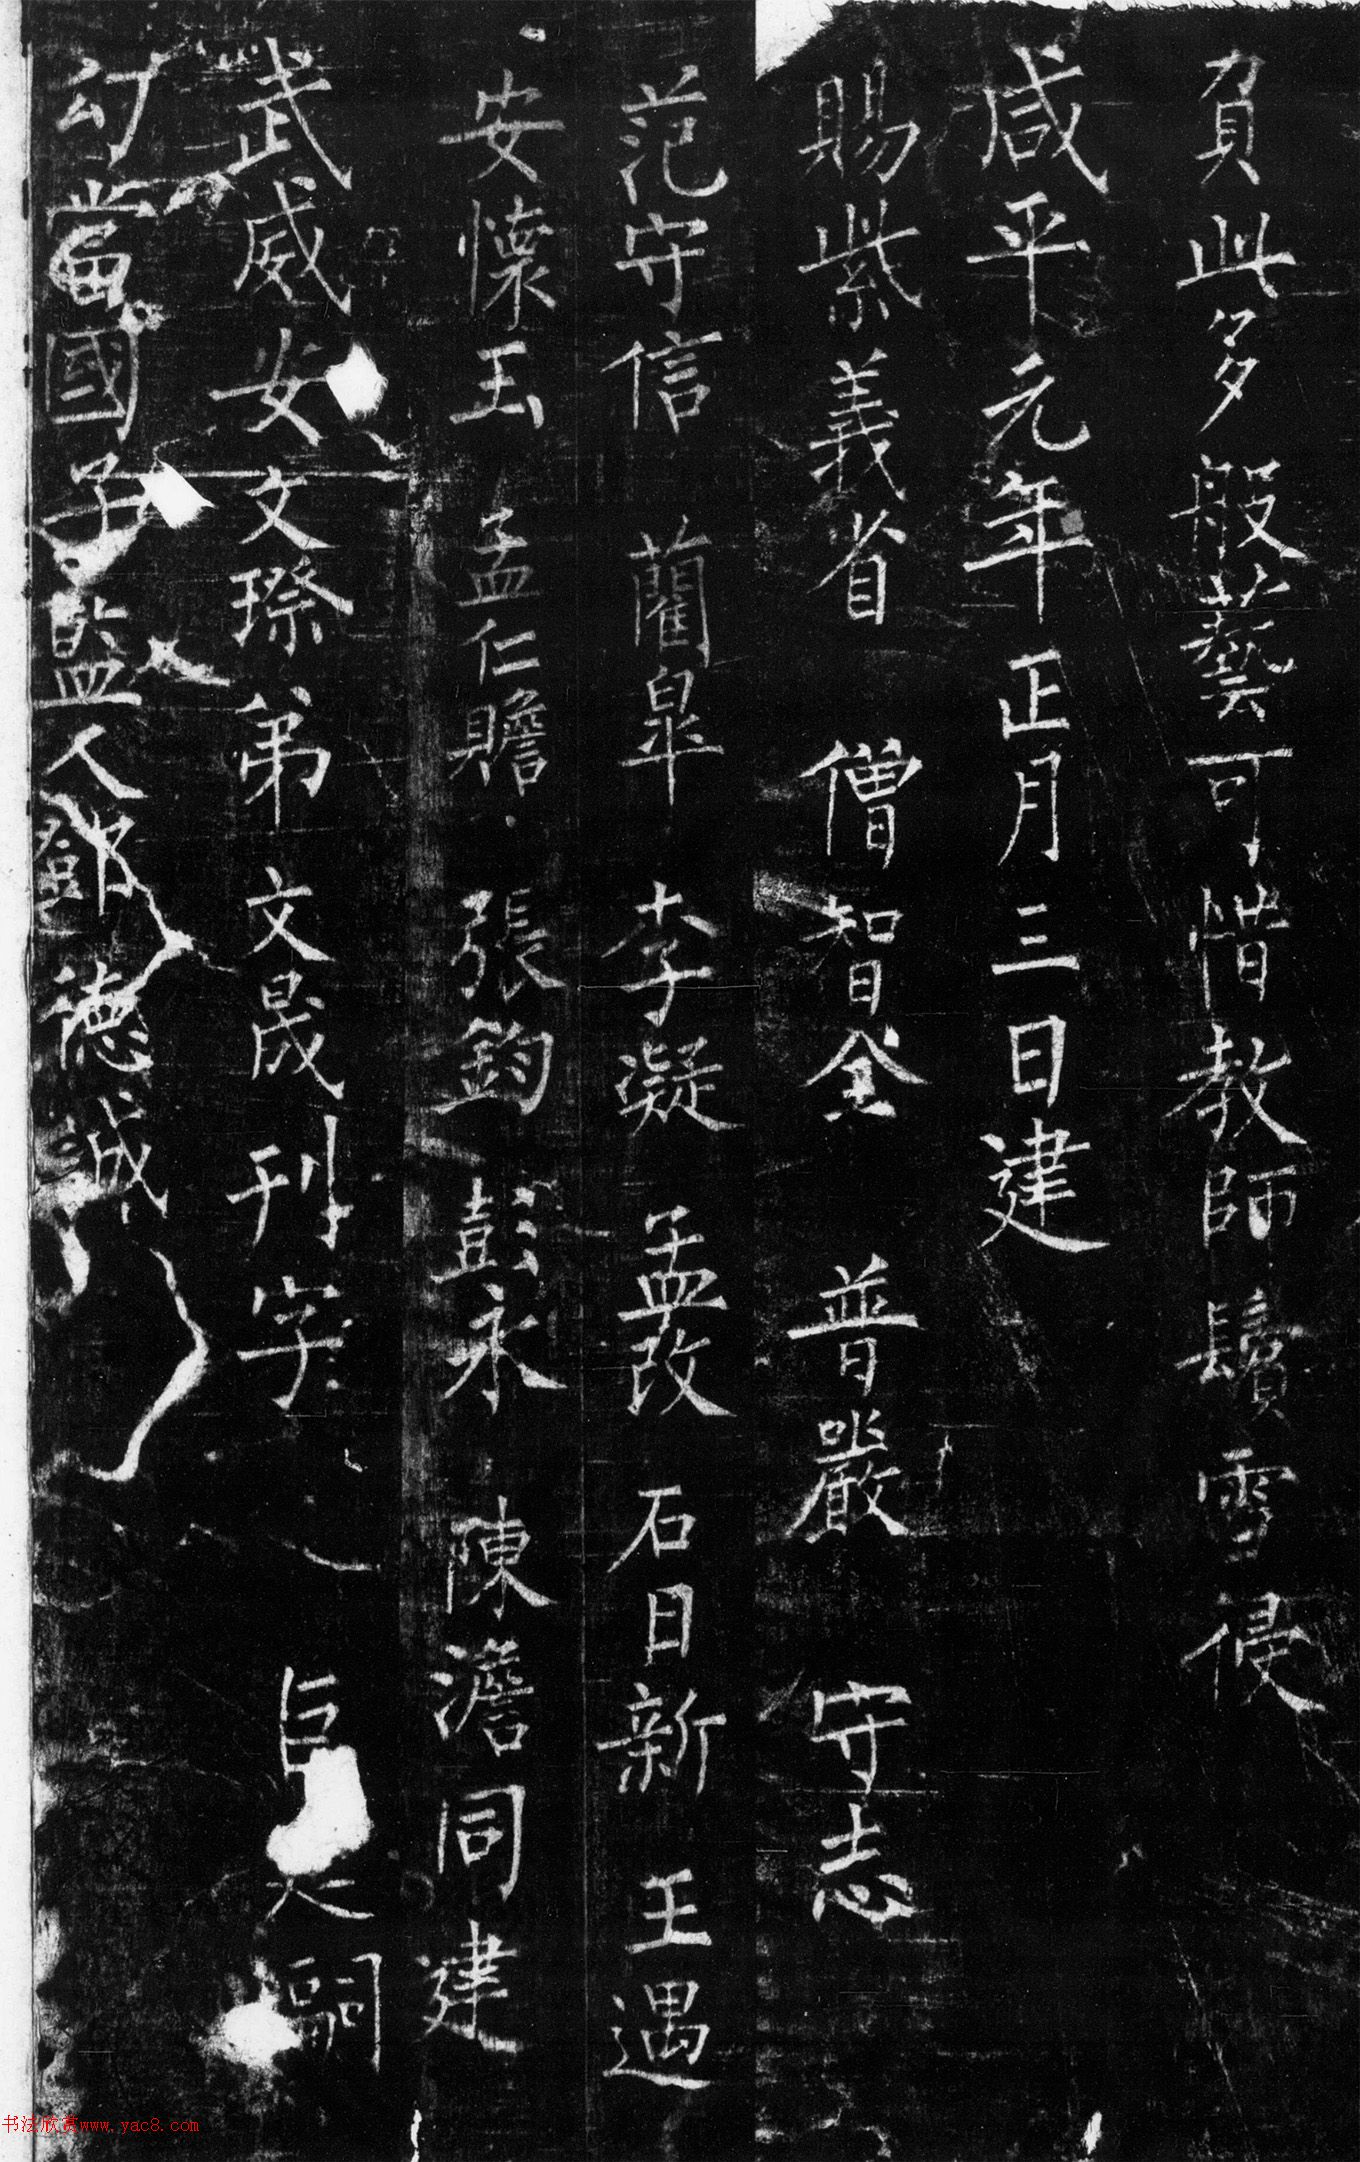 負此多般藝可惜教師鬚雪侵
咸平元年正月三日建
賜紫義省 僧智全 普嚴 守志
范守信 藺皐 李凝 孟改 石日新 王遇
安懷玉 孟仁贍 張鈞 彭永 陳澹同建
武威安文璨弟文晟刊字
勾當國子監人鄧德誠
书法欣赏www.yac8.com